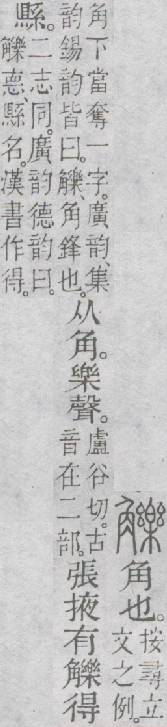 觻
角也。
按尋立
文之例。
角下當奪一字。廣韵、集
韵錫韵皆曰。觻、角鋒也。
从角。樂聲。
盧谷切。古
音在二部。
張掖有觻得
縣。
二志同。廣韵德韵曰。
觻惪縣名。漢書作得。